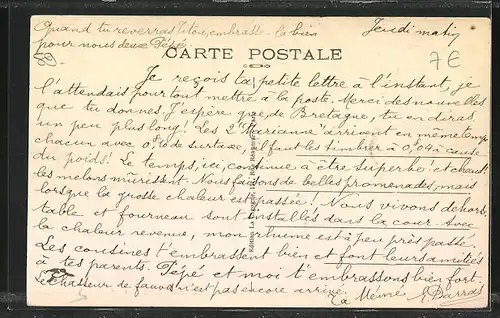 Quand tu reverras Titou, embrasse-la bien
pour nous deux Pépé.
Jeudi matin
89.
7€
CARTE POSTALE
Je reçois ta petite lettre à l'instant, je
l'attendais pour tout mettre à la poste. Merci des nouvelles
que tu donnes. J'espère que, de Bretagne, tu en diras
un peu plus long! Les 2 "Marianne" arrivent en même temps
chacun avec 0f.16 de surtaxe, il faut les timbrer à 0f04 à cause
du poids! Le temps, ici, continue à être superbe et chaud:
les melons mûrissent. Nous faisons de belles promenades, mais
lorsque la grosse chaleur est passée! Nous vivons dehors,
table et fourneau sont installés dans la cour. Avec
la chaleur revenue, mon rhume est à peu près passé.
Les cousines t'embrassent bien et font leurs amitiés
à tes parents. Pépé et moi t'embrassons bien fort.
Le chasseur de fauves n'est pas encore arrivé.
Ta Mémé
Darras